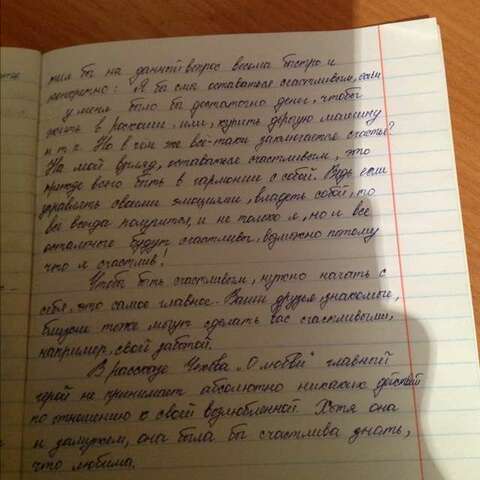 тил бы на данный вопрос весьма быстро и
конкретно: "Я бы смог оставаться счастливым, если
у меня было бы достаточно денег, чтобы
жить в роскоши, или купить дорогую машину
и т.д. Но в чем же всё-таки заключается счастье?
На мой взгляд, оставаться счастливым, это
прежде всего быть в гармонии с собой. Ведь если
управлять своими эмоциями, владеть собой, то
все всегда получится, и не только я, но и все
остальные будут счастливы, возможно потому
что я счастлив!
Чтобы быть счастливым, нужно начать с
себя, это самое главное. Ваши друзья, знакомые,
близкие тоже могут сделать вас счастливыми,
например, свой заботой.
В рассказе Чехова „О любви" главный
герой не принимает абсолютно никаких действий
по отношению к своей возлюбленной. Хотя она
и замужем, она была бы счастлива знать,
что любима.